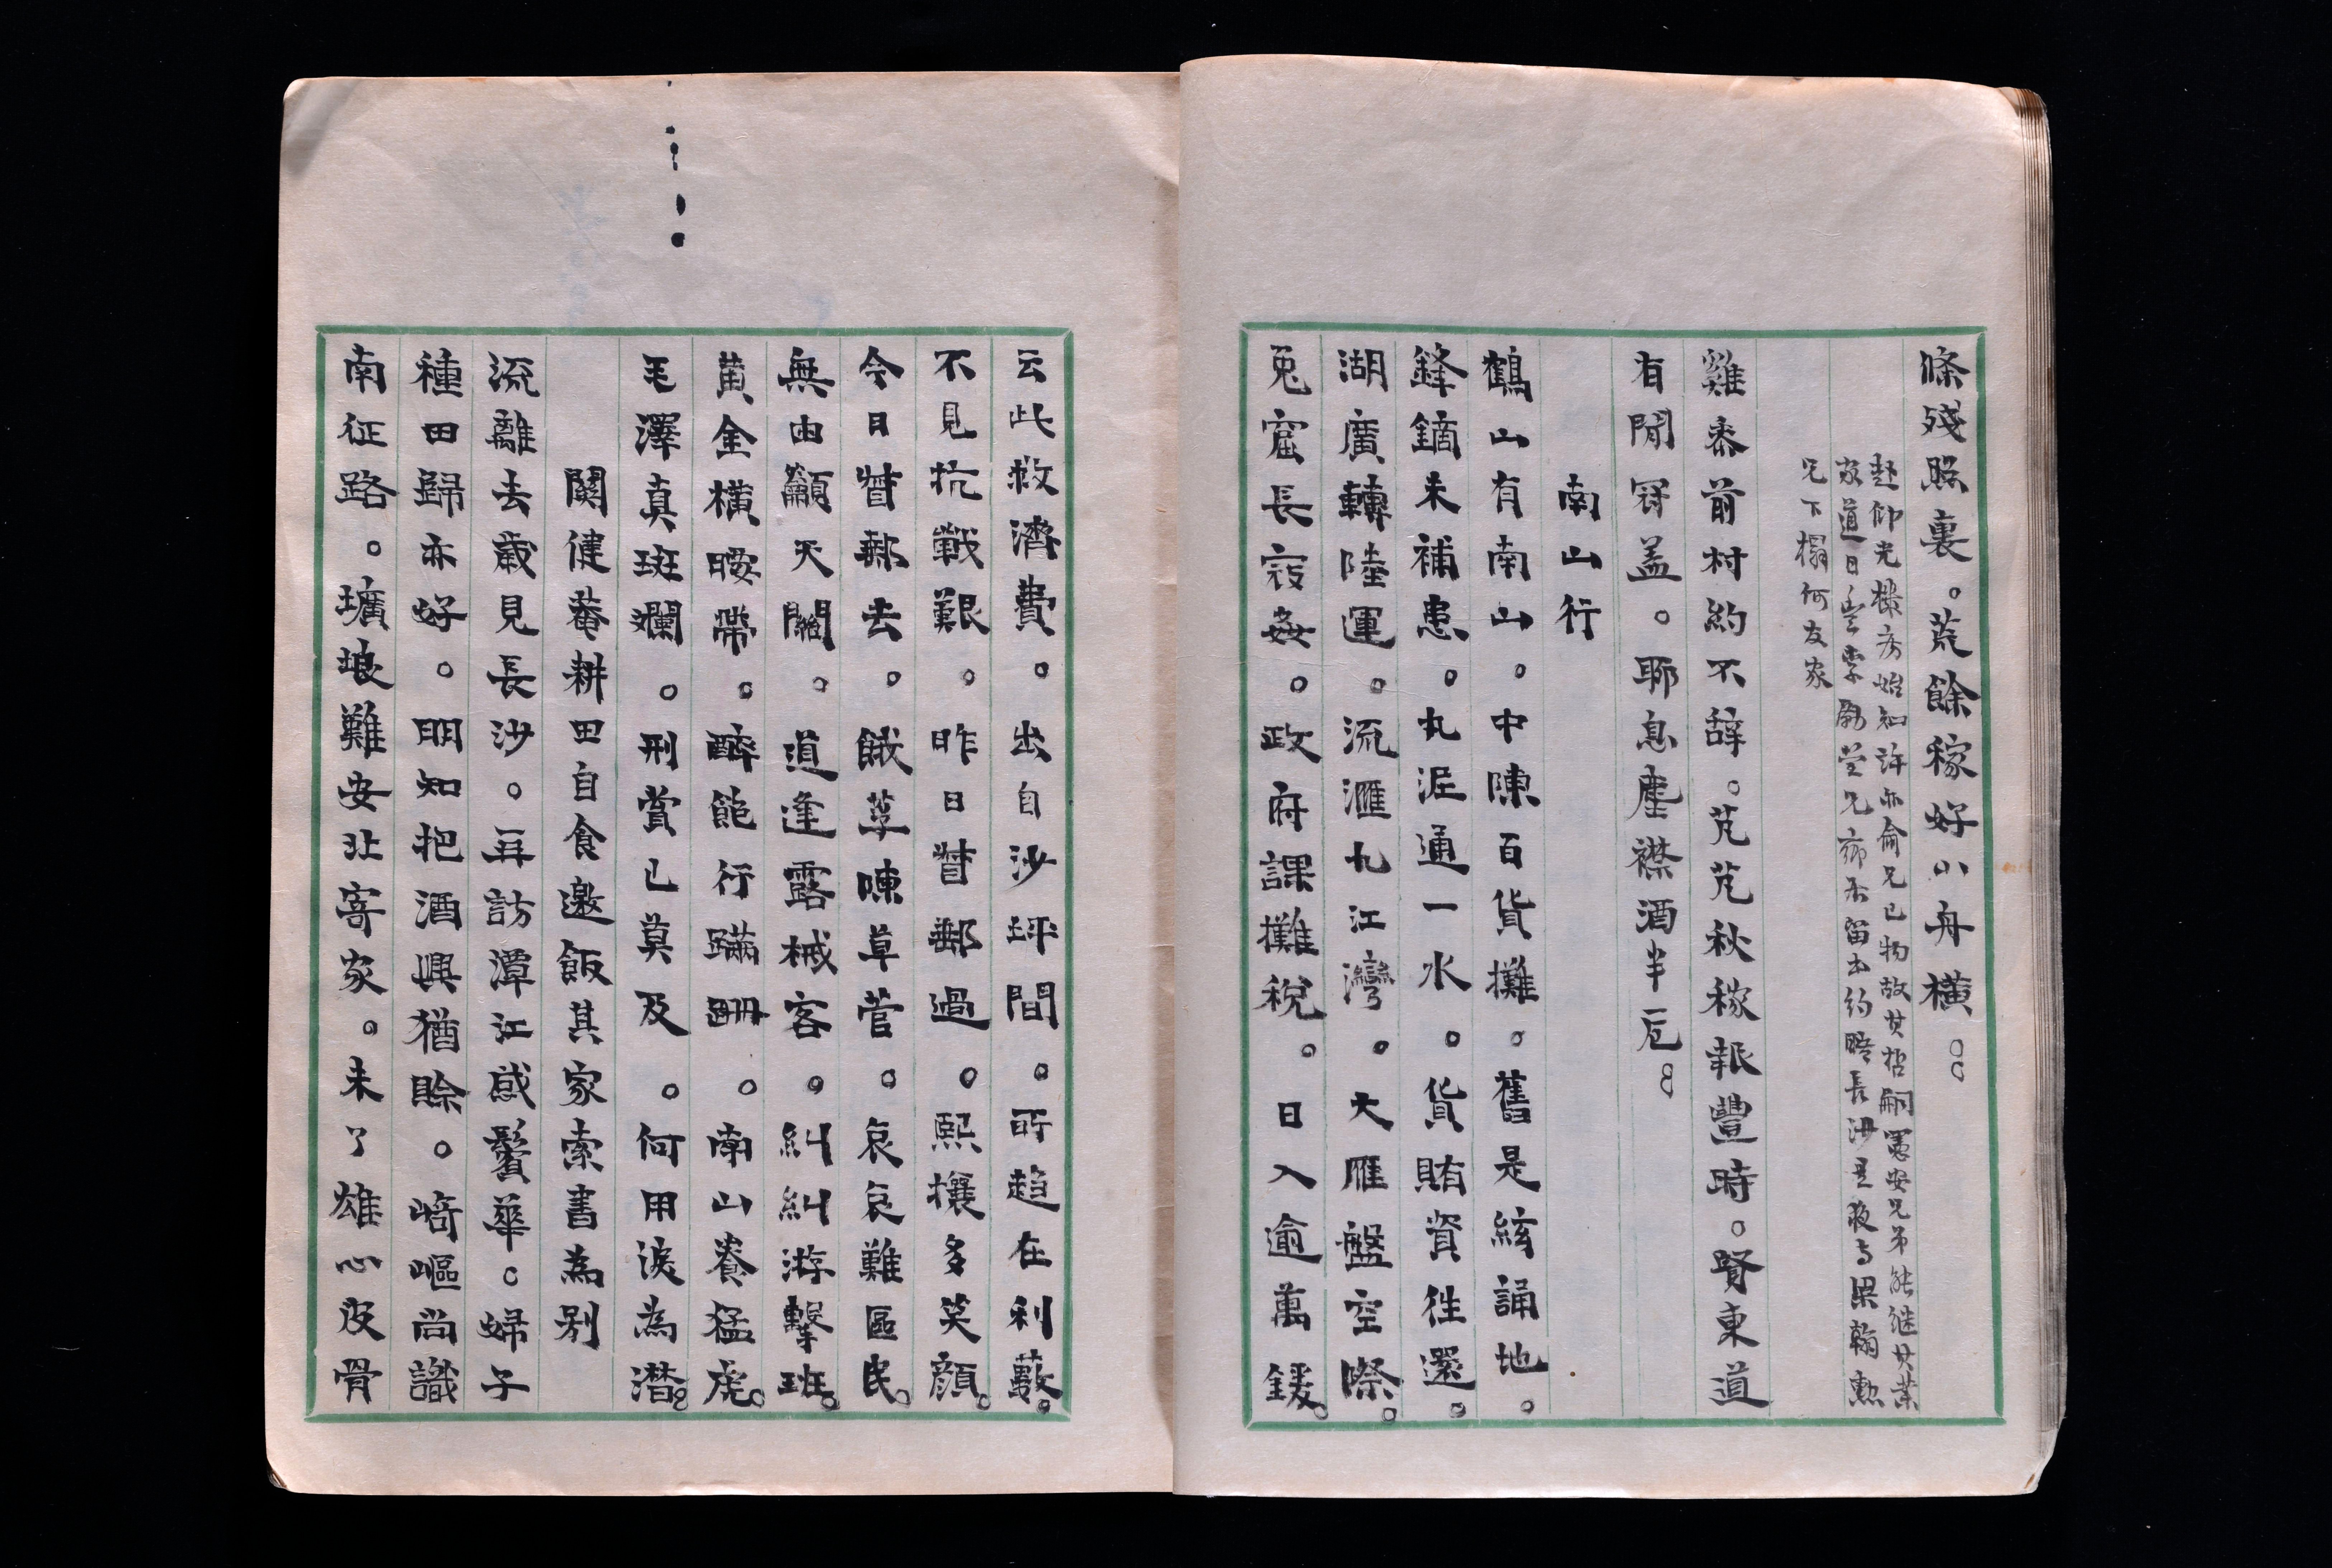 條殘照裏。荒餘稼好小舟橫。。
赴仰光樓房始知許亦俞兄已物故其哲嗣憲安兄弟能继其業
家道日豐李勛堂兄病未留书约晤長沙是夜与梁翰勲
兄下榻何友家
雞黍前村約不辞。芃芃秋稼報豐時。賢東道
有閒冠盖。聊息塵襟酒半卮。。
南山行
鶴山有南山。中陳百貨攤。舊是絃誦地。
鋒鏑未補患。丸泥通一水。貨賄資徃還。
湖廣轉陸運。流滙九江灣。大雁盤空際。
兎窟長寇姦。政府課攤稅。日入逾萬鍰。
云此救濟費。出自沙坪間。所趋在利藪。
不見抗戰艱。昨日督郵過。熙攘多笑顔。
今日督郵去。餓莩陳草菅。哀哀難區民。
無由籲天閽。道逢露械客。糾糾游擊班。
黄金橫腰帶。醉飽行蹣跚。南山養猛虎。
毛澤真斑斕。刑賞已莫及。何用淚為潸。。
關健菴耕田自食邀飯其家索書為别
流離去歲見長沙。再訪潭江感鬢華。婦子
種田歸亦好。明知把酒興猶賒。崎嶇尚識
南征路。壙埌難安北寄家。未了雄心皮骨